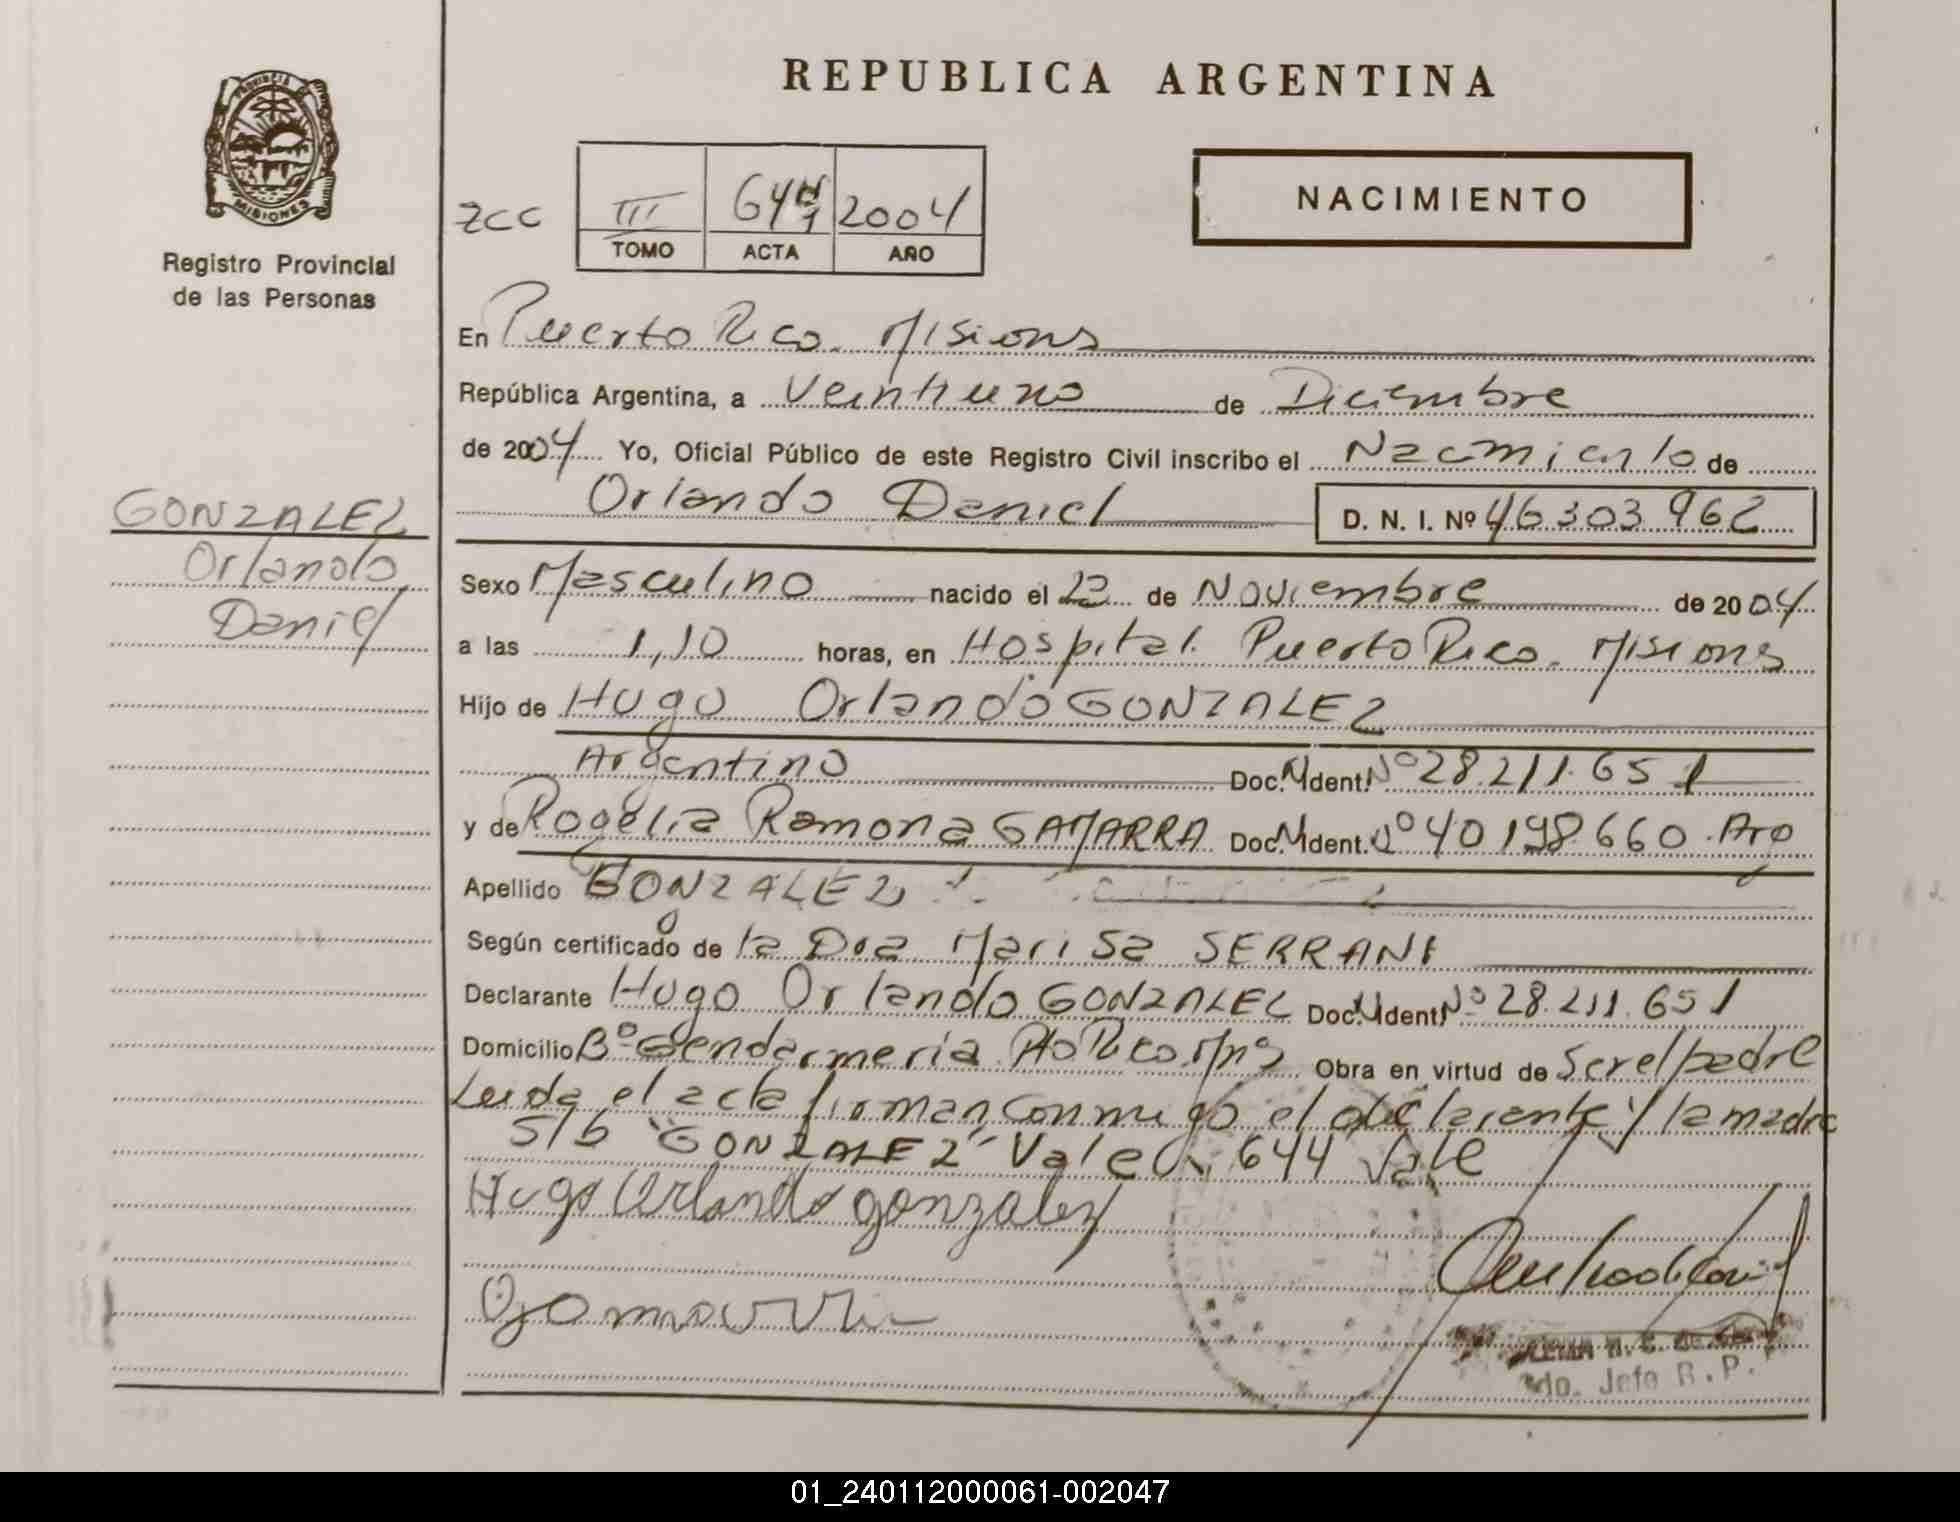 PROVINCIA
MISIONES
Registro Provincial
de las Personas
GONZALEZ
Orlando
Daniel
REPUBLICA ARGENTINA
ZCC
III 644 2004
TOMO ACTA AÑO
NACIMIENTO
En Puerto Rico. Misions
República Argentina, a Veintiuno de Diciembre
de 2004 Yo, Oficial Público de este Registro Civil inscribo el Nacimiento de
Orlando Daniel D. N. I. Nº 46303962
Sexo Masculino nacido el de Noviembre de 2004
a las 1,10 horas, en Hospital. Puerto Rico. Misions
Hijo de Hugo Orlando GONZALEZ
Argentino Doc. N Ident. Nº 28.211.651
y de Rogelia Ramona GAMARRA Doc. N Ident. Nº 40198660. Arg
Apellido GONZALEZ
Según certificado de la Dra Marisa SERRANI
Declarante Hugo Orlando GONZALEZ Doc. N Ident. Nº 28.211.651
Domicilio Bº Gendarmeria Pto Rico Mns Obra en virtud de Ser el padre
Leida el acta firman conmigo el declarante y la madre
S/b "GONZALEZ" Vale. 644 Vale
Hugo Orlando gonzalez
Jefe R.P.
01_240112000061-002047